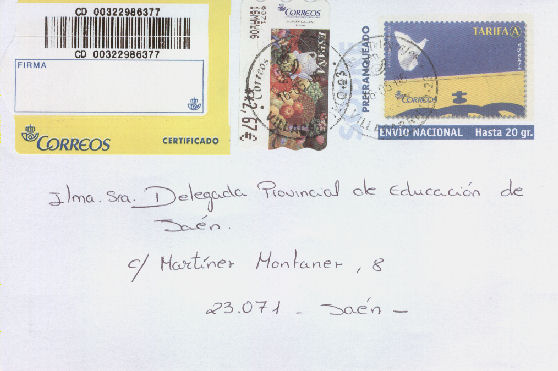 CD 00322986377
CD 00322986377
FIRMA
CORREOS
CERTIFICADO
CORREOS
ESPAÑA
***2,67€
CORREOS
PREFRANQUEADO
TARIFA A
ESPAÑA
CORREOS
ENVÍO NACIONAL Hasta 20 gr.
Ilma. Sra. Delegada Provincial de Educación de
Jaén.
c/ Martíner Montaner, 8
23.071 - Jaén -